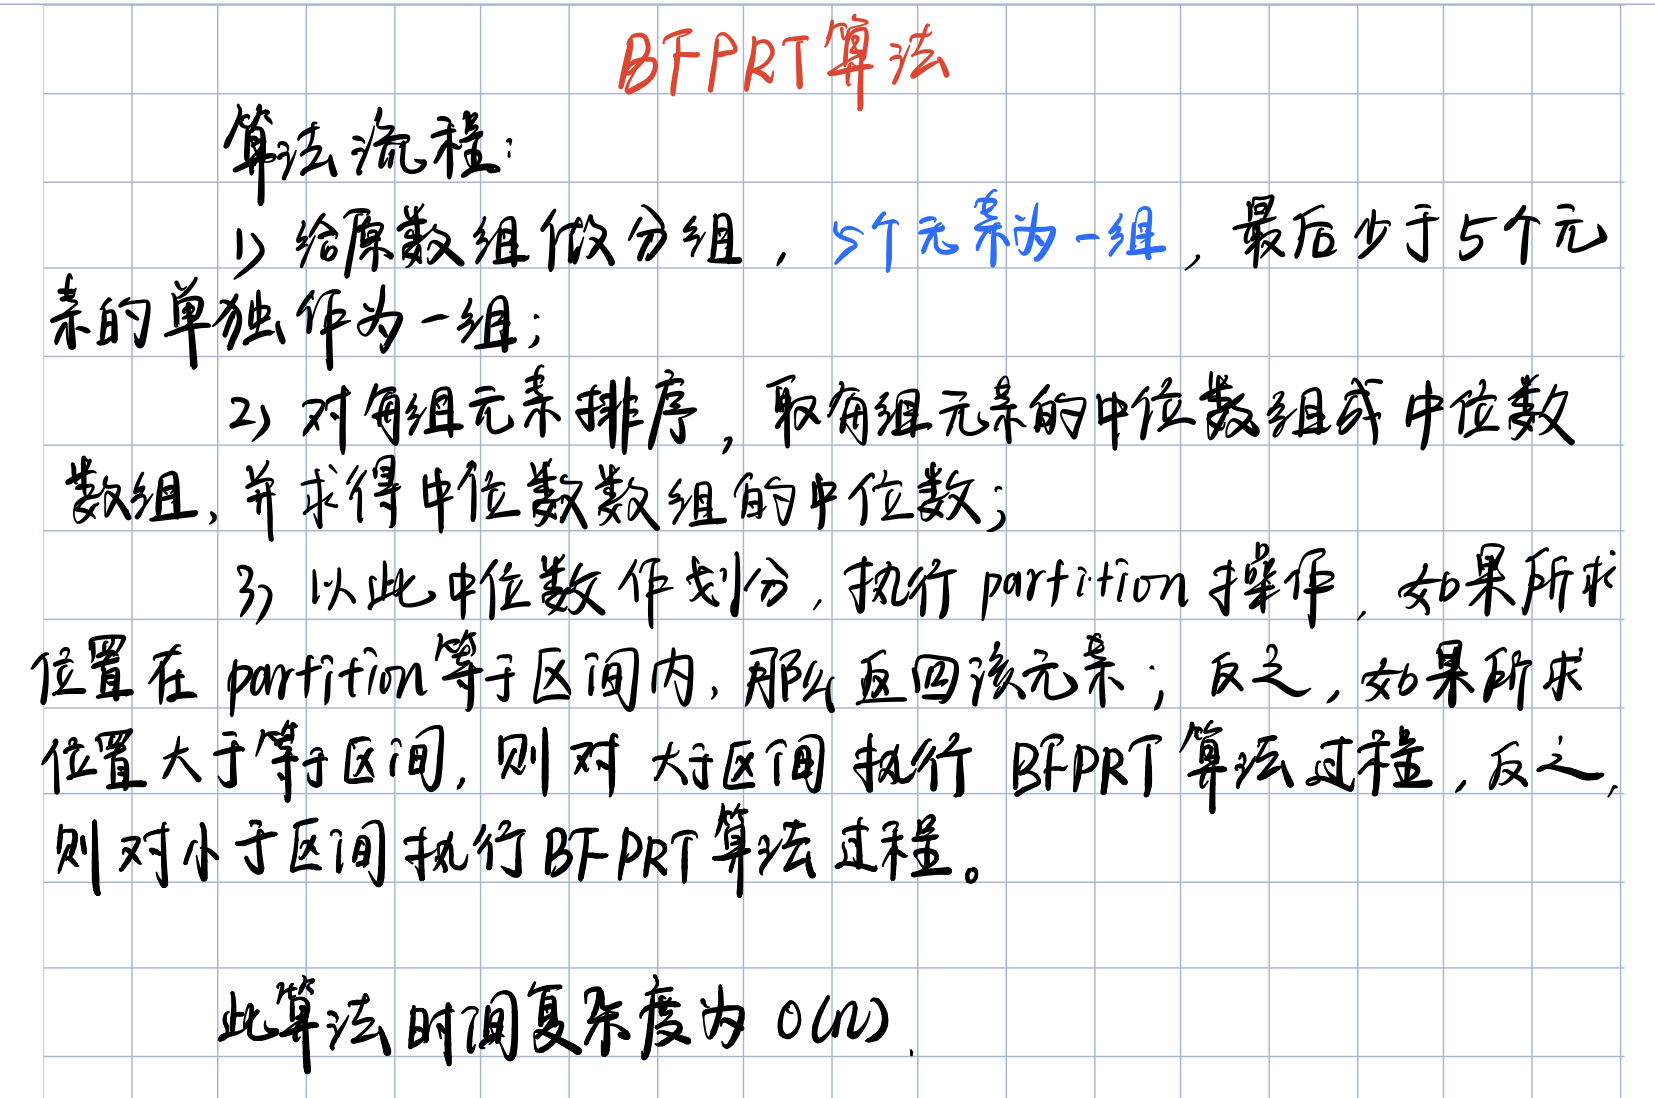 BFPRT算法
算法流程:
1) 给原数组做分组，5个元素为一组，最后少于5个元
素的单独作为一组;
2) 对每组元素排序，取每组元素的中位数组成中位数
数组，并求得中位数数组的中位数;
3) 以此中位数作划分，执行partition操作，如果所求
位置在partition等于区间内，那么返回该元素；反之，如果所求
位置大于等于区间，则对大于区间执行BFPRT算法过程，反之，
则对小于区间执行BFPRT算法过程。
此算法时间复杂度为 O(n).